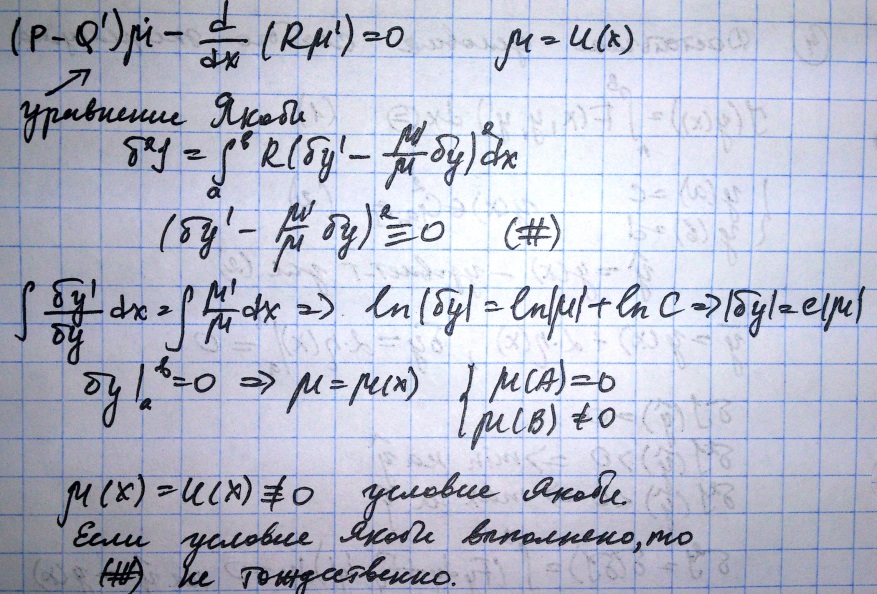 (P - Q')μ - d/dx (Rμ') = 0 μ = u(x)
уравнение Якоби
δ²J = ∫ₐᵇ R(δy' - μ'/μ δy)² dx
(δy' - μ'/μ δy)² ≡ 0 (#)
∫ δy'/δy dx = ∫ μ'/μ dx => ln|δy| = ln|μ| + ln C => |δy| = c|μ|
δy|ₐᵇ = 0 => μ = μ(x) { μ(A) = 0
μ(B) ≠ 0
μ(x) = u(x) ≢ 0 условие Якоби.
Если условие Якоби выполнено, то
(#) не тождественно.